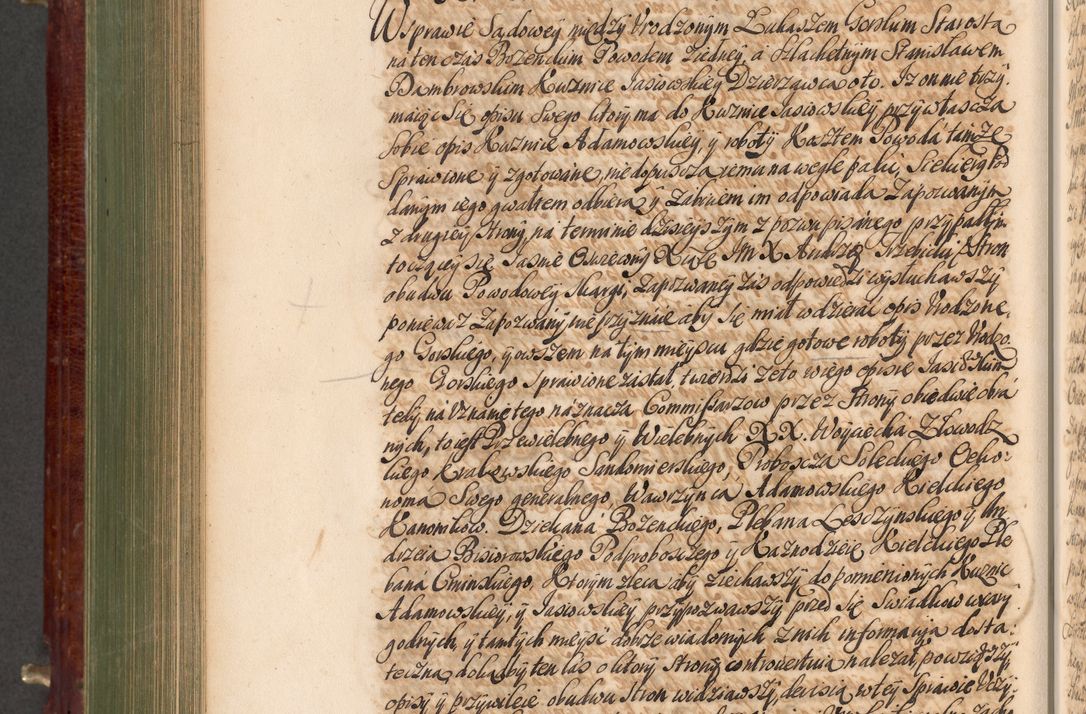 W Sprawie Sądowey między Urodzonym Łukaszem Gorskim Starostą
na ten czas Bozenckim Powodem z iedney, a Szlachetnym Stanisławem
Dambrowskim Kuznice Jasiowskiey Dzierzawcą oto. Iz on nie trzy,
maiąc się opisu swego ktory ma do Kuznice Jasiowskiey przywłascza
sobie opis Kuznice Adamowskiey, y roboty Kosztem Powoda tamze
sprawione y zgotowane, nie dopuscza remi na węgle palić, Siekiery pod
danym iego gwałtem odbiera, y zabiciem im odpowiada Zapozwanym
z drugiey strony, na terminie dzisieyszym z pozwu pisanego przypadłym
toczącey się Jasnie Oswiecony Xiąże JM X Andrzey Trzebicki Stron
obudwu Powodowey skargi, Zapozwaney zas odpowiedzi wysłuchawszy
poniewaz Zapozwany nie przyznaie aby się miał wdzierać opis Urodzone,
go Gorskiego, y owszem na tym mieyscu gdzie gotowe roboty przez Urodzo
nego Gorskiego sprawione zastał, twierdzi ze to w iego opisie Jasiowskim
tedy na Uznanie tego náznacza Commissarzow przez Strony obiedwie obrá
nych, to iest Przewielebnego y Wielebnych XX. Woyciecha Złowodz
kiego Krakowskiego Sandomierskiego, Proboscza Soleckiego Oeko,
noma Swego generalnego, Wawrzyńca Adamowskiego Kieleckiego
Kanonikow. Dziekana Bozenckiego, Plebana Lesczynskiego y An
drzeia Bisiorowskiego Podproboszego y Kaznodzieię Kieleckiego Ple
bana Cminskiego, Ktorym zleca aby ziechawszy do pomienionych Kuznic
Adamowskiey, y Jasiowskiey przypozwawszy przed się Swiadkow wiary
godnych, y tamtych mieysc dobrze wiadomych z nich informacyą dosta,
teczną dokądby ten las o ktory strony controvertuią nalezał, powziąwszy
opisy y przywileie obudwu stron widziawszy, decisią w tey Sprawie Uczy,